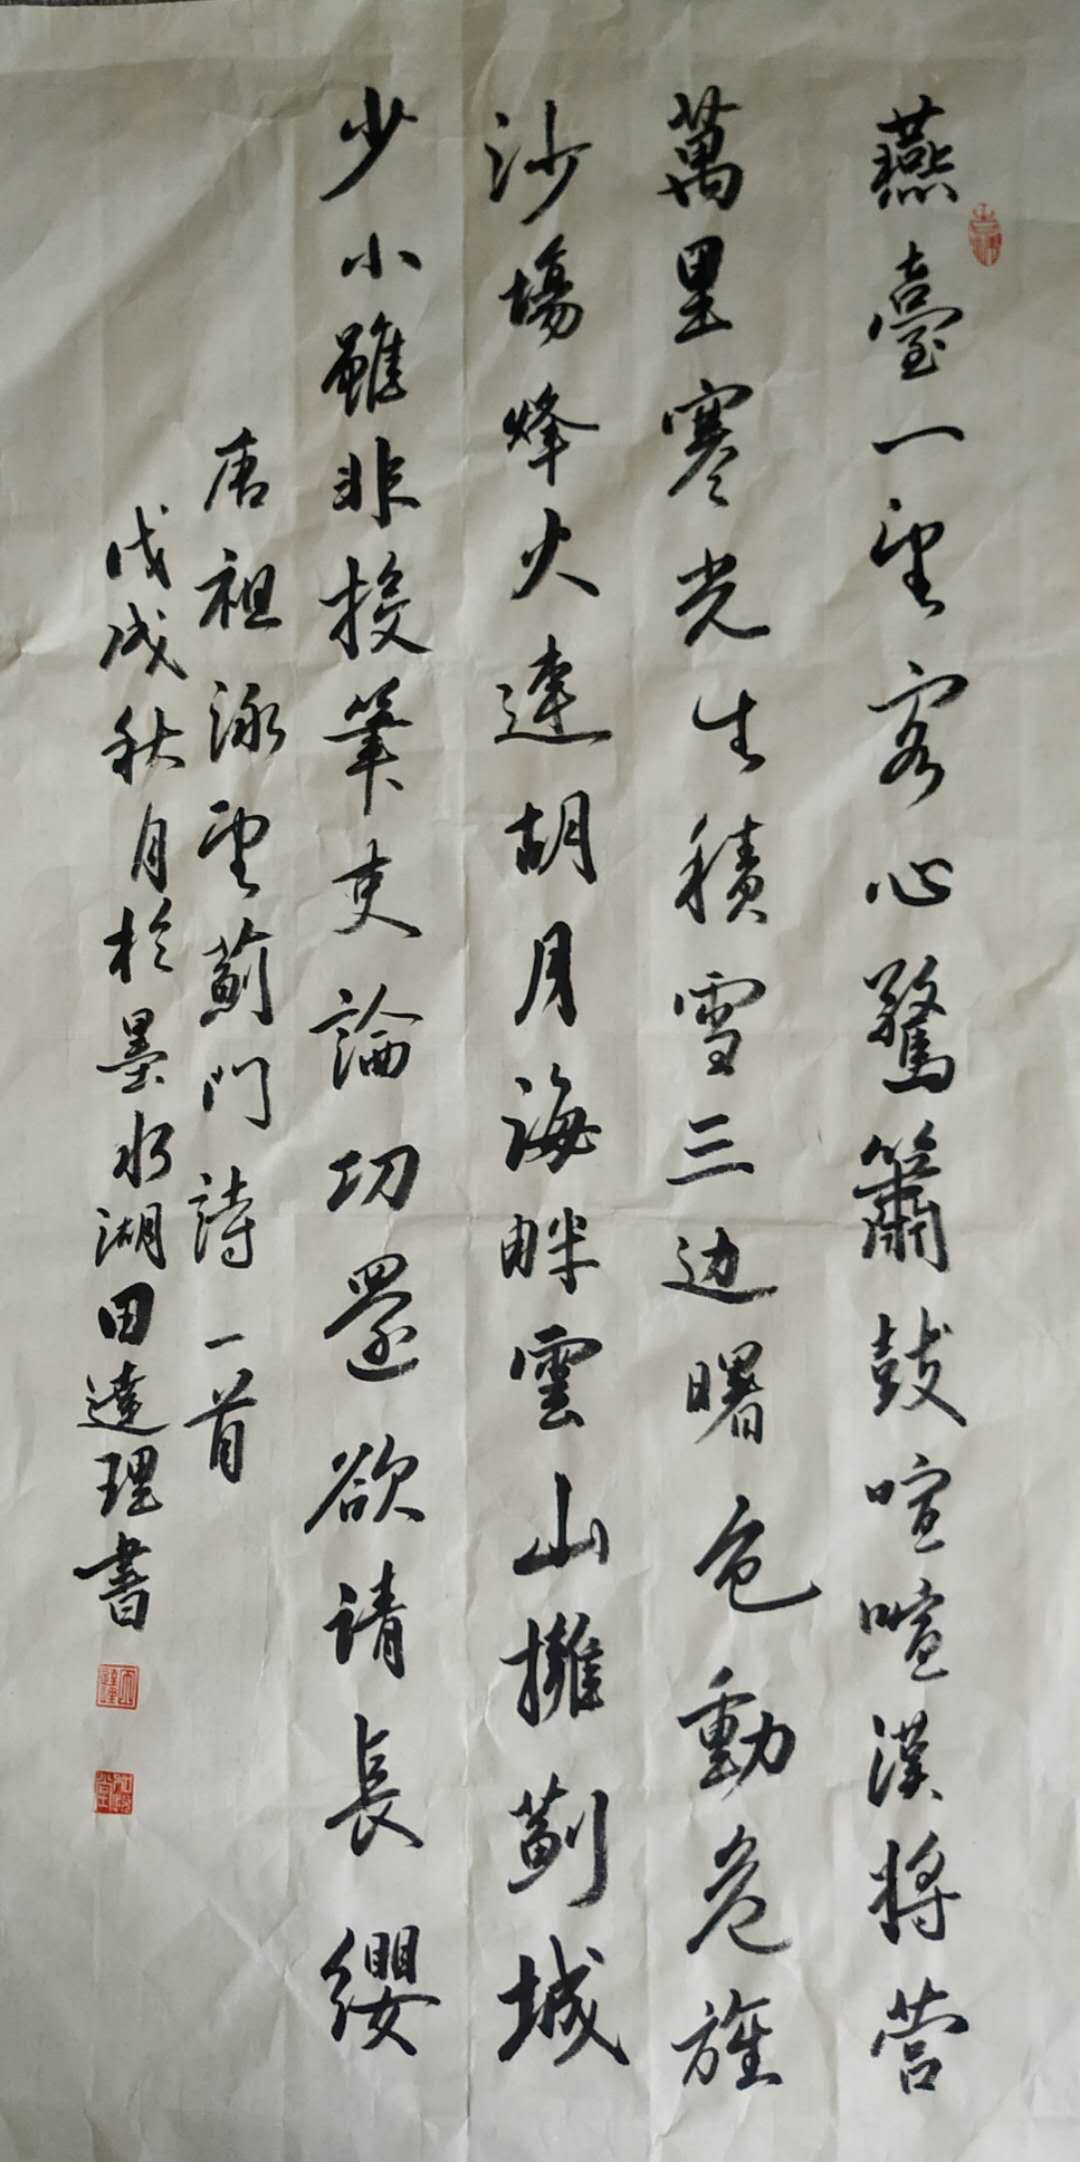 燕臺一望客心驚簫鼓喧喧漢將營
萬里寒光生積雪三边曙色動危旌
沙場烽火連胡月海畔雲山擁薊城
少小雖非投筆吏論功還欲请長纓
唐祖泳望薊門詩一首
戊戌秋月於墨水湖田達理書